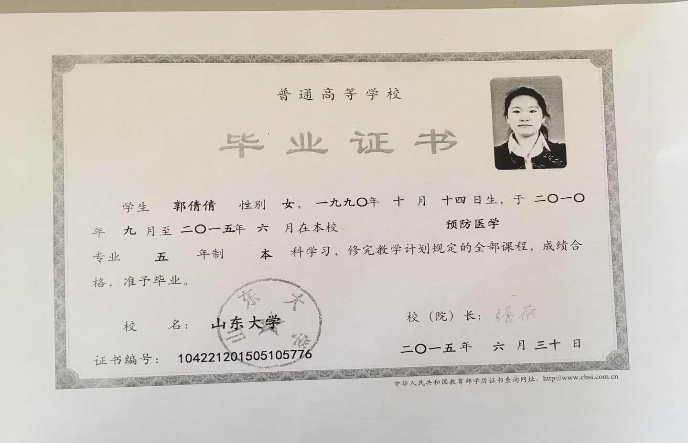 普通高等学校
毕业证书
学生 郭倩倩 性别 女，一九九〇年 十 月 十四日生，于 二〇一〇
年 九 月至 二〇一五年 六 月在本校 预防医学
专业 五 年制 本 科学习，修完教学计划规定的全部课程，成绩合
格，准予毕业。
校 名： 山东大学
山东大学
校（院）长：
证书编号： 104221201505105776
二〇一五年 六 月 三十 日
中华人民共和国教育部学历证书查询网址：http://www.chsi.com.cn